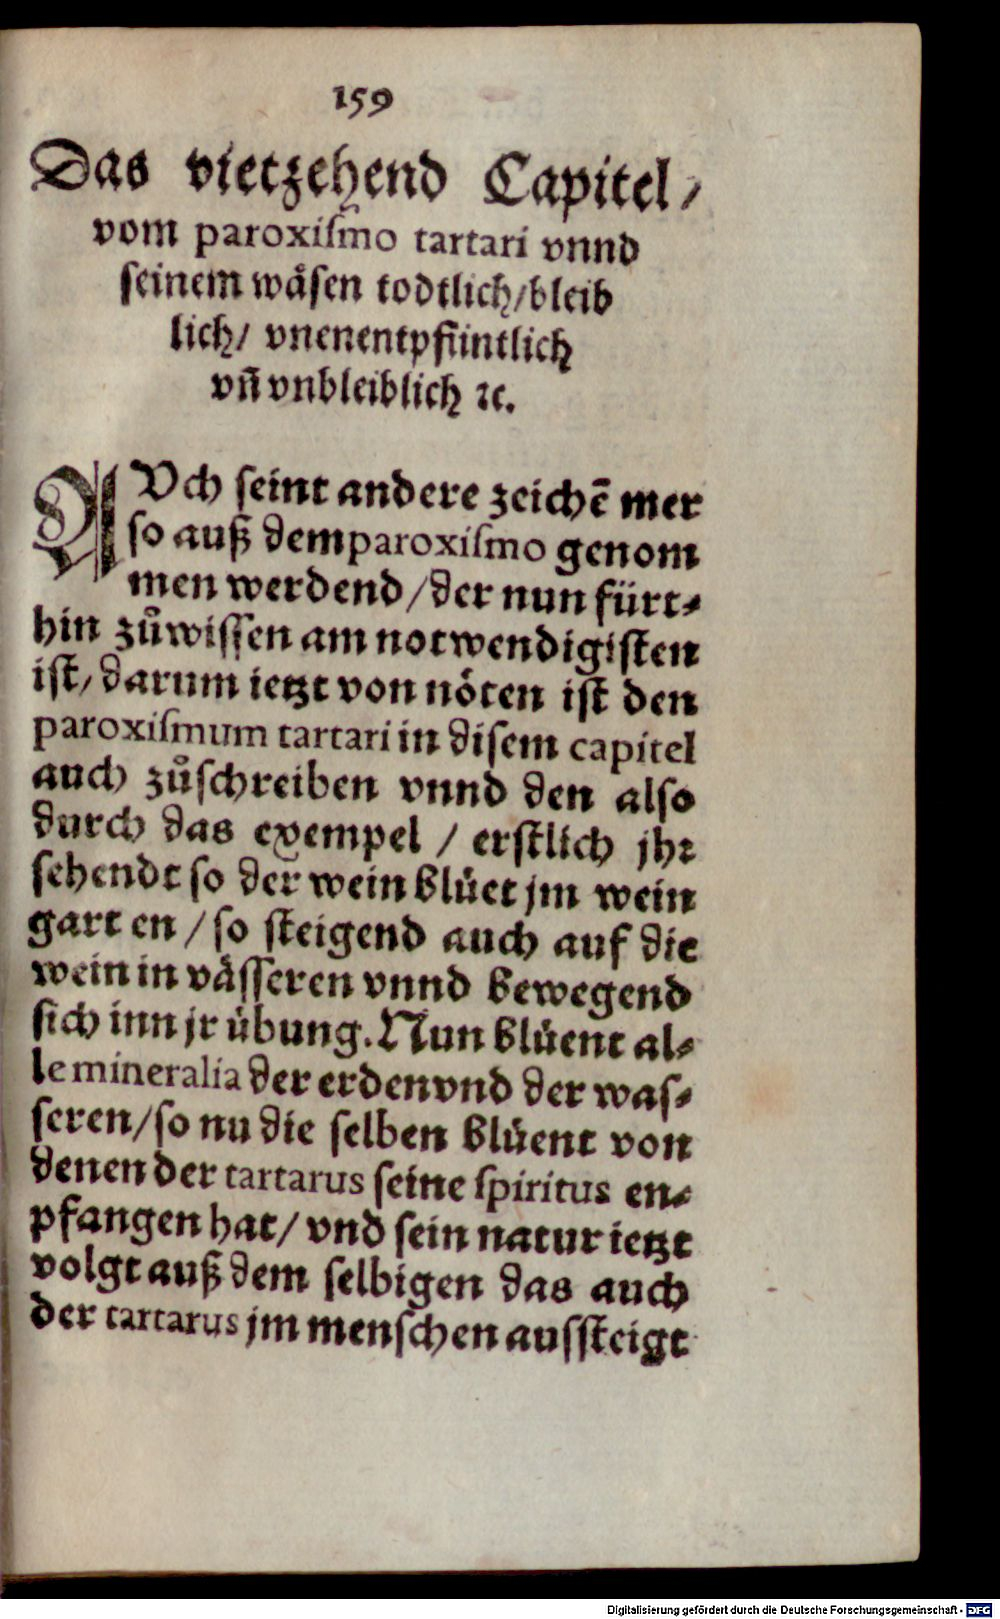 159
Das vietzehend Capitel /
vom paroxiſmo tartari vnnd
ſeinem wåſen todtlich/bleib
lich/ vnenentpfiintlich
vñ vnbleiblich ꝛc.
AVch ſeint andere zeichē mer
ſo auß dem paroxiſmo genom
men werdend /der nun fürt⸗
hin zůwiſſen am notwendigiſten
iſt/ darum ietzt von nöten iſt den
paroxiſmum tartari in diſem capitel
auch zůſchreiben vnnd den alſo
durch das exempel / erſtlich jhꝛ
ſehendt ſo der wein blüet jm wein
gart en /ſo ſteigend auch auf die
wein in våſſeren vnnd bewegend
ſich inn jr übung. Nun blüent al⸗
le mineralia der erden vnd der waſ⸗
ſeren/ſo nu die ſelben blüent von
denen der tartarus ſeine ſpiritus en⸗
pfangen hat/ vnd ſein natur ietzt
volgt auß dem ſelbigen das auch
der tartarus jm menſchen aufſteigt
Digitalisierung gefördert durch die Deutsche Forschungsgemeinschaft - DFG